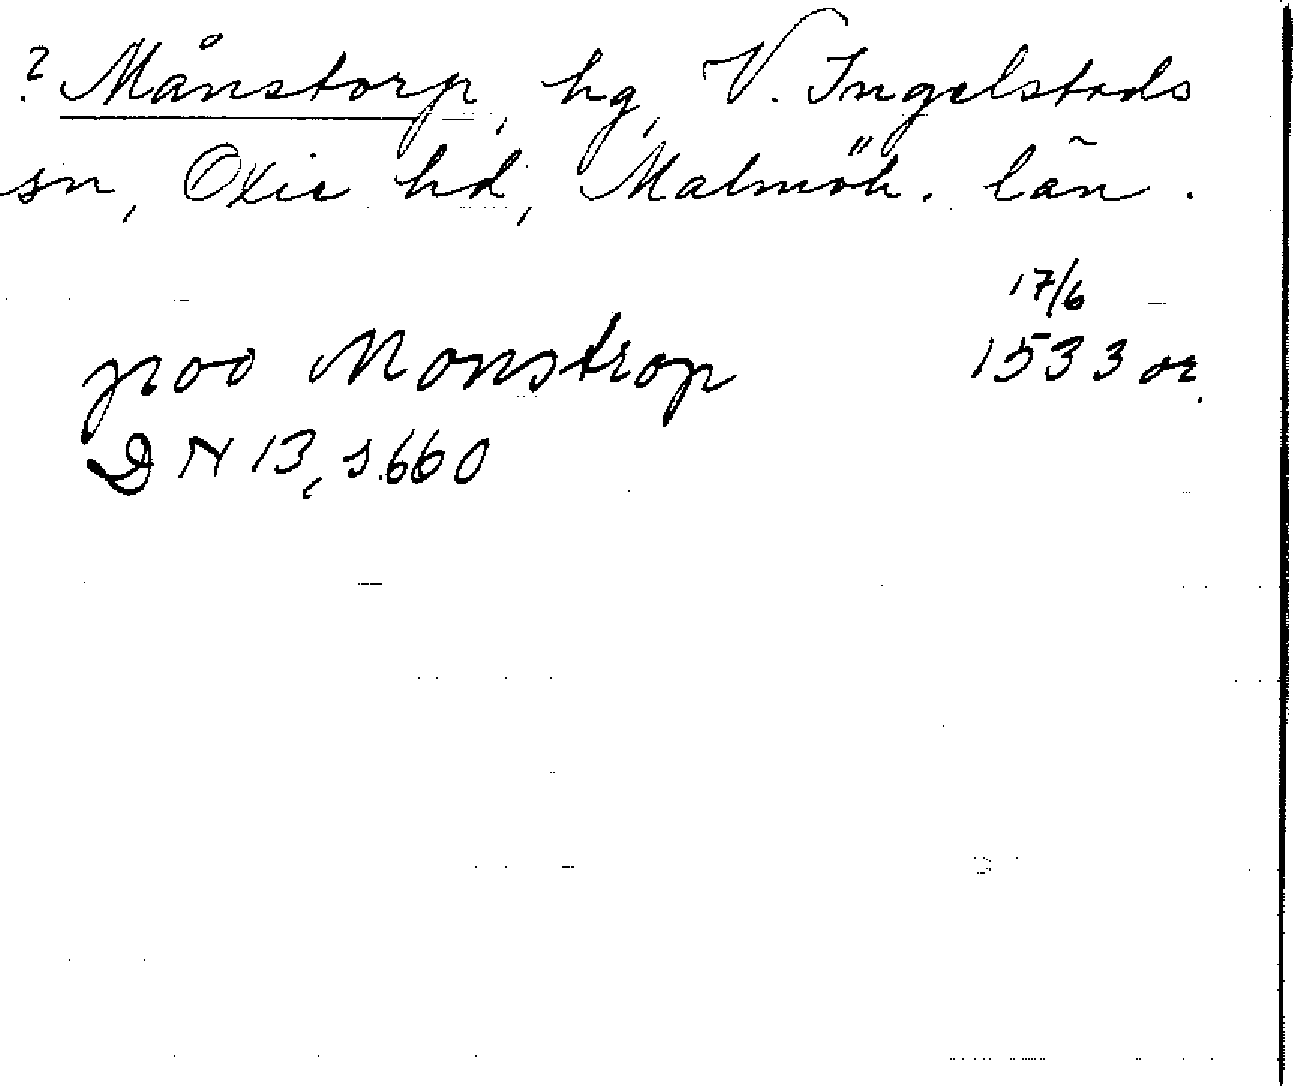 ? Månstorp, hg, V. Ingelstads
sn, Oxie hd, Malmöh. län.
17/6
poo Monstrop 1533 or.
DN 13, s. 660